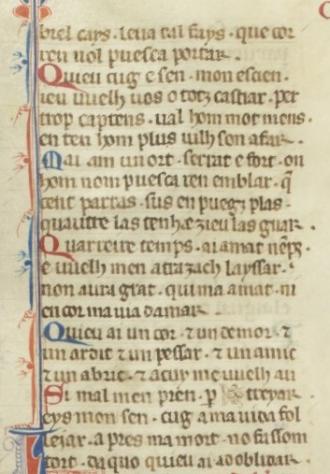 briel cays. leua tal fays. que cor
ren uol puesca portar.
Quieu cug e sen. mon escien.
ieu uuelh uos o totz castiar. per
trop captens. ual hom mot mens.
en ten hom plus uilh son afar.
Mai am un ort. serrat e fort. on
hom nom puesca ren emblar. q̃
cent parras. sus en puegz plas.
quautre las tenh e zieu las guar.
Quarreire temps. ai amat
e uuelh men atrazach layssar.
non aura grat. qui ma amat. ni
en cor ma uia damar.
Quieu ai un cor. ⁊ un demor. ⁊
un ardit ⁊ un pessar. ⁊ un amic
⁊ un abric. ⁊ a cuy me uuelh au
Si mal men pren. p treyar.
eys mon sen. cug a ma uida fol
leiar. apres ma mort. no fasson
tort. da quo quieu ai ad oblidar.